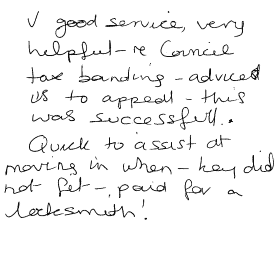 V good service, very
helpful - re Council
tax banding - advised
us to appeal - this
was successful.
Quick to assist at
moving in when - key did
not fit -, paid for a
locksmith!